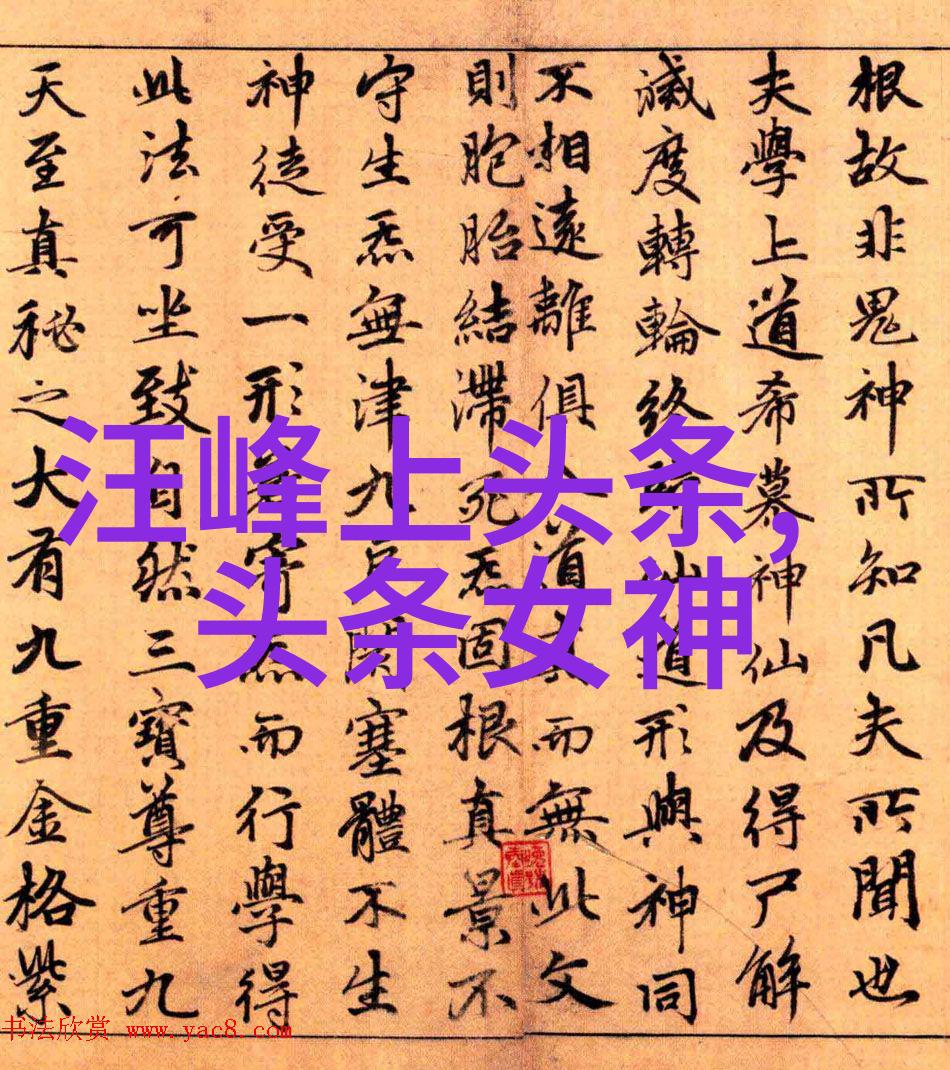 根故非鬼神所知凡夫所聞也
夫學上道希慕神仙及得尸解
滅度轉輪終仙道形與神同
不相遠離俱入道而無此文
則胞胎結滯死炁固根真景不
守生炁無津九戶閉塞體不生
神徒受一形若寄炁而行學得
此法可坐致自然三寶尊重九
天至真秘之大有九重金格紫
汪峰上头条,
头条女神
书法欣赏 www.yac8.com